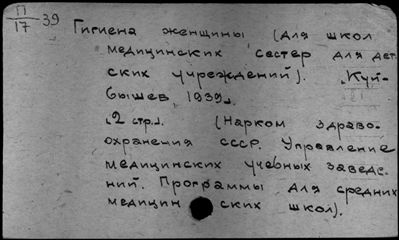 П
17 39
Гигиена женщины (для школ
медицинских сестер для дет-
ских учреждений). Куй-
бышев 1939.
2 стр. (Нарком здраво-
охранения СССР. Управление
медицинских учебных заведе-
ний. Программы для средних
медицин ских школ).